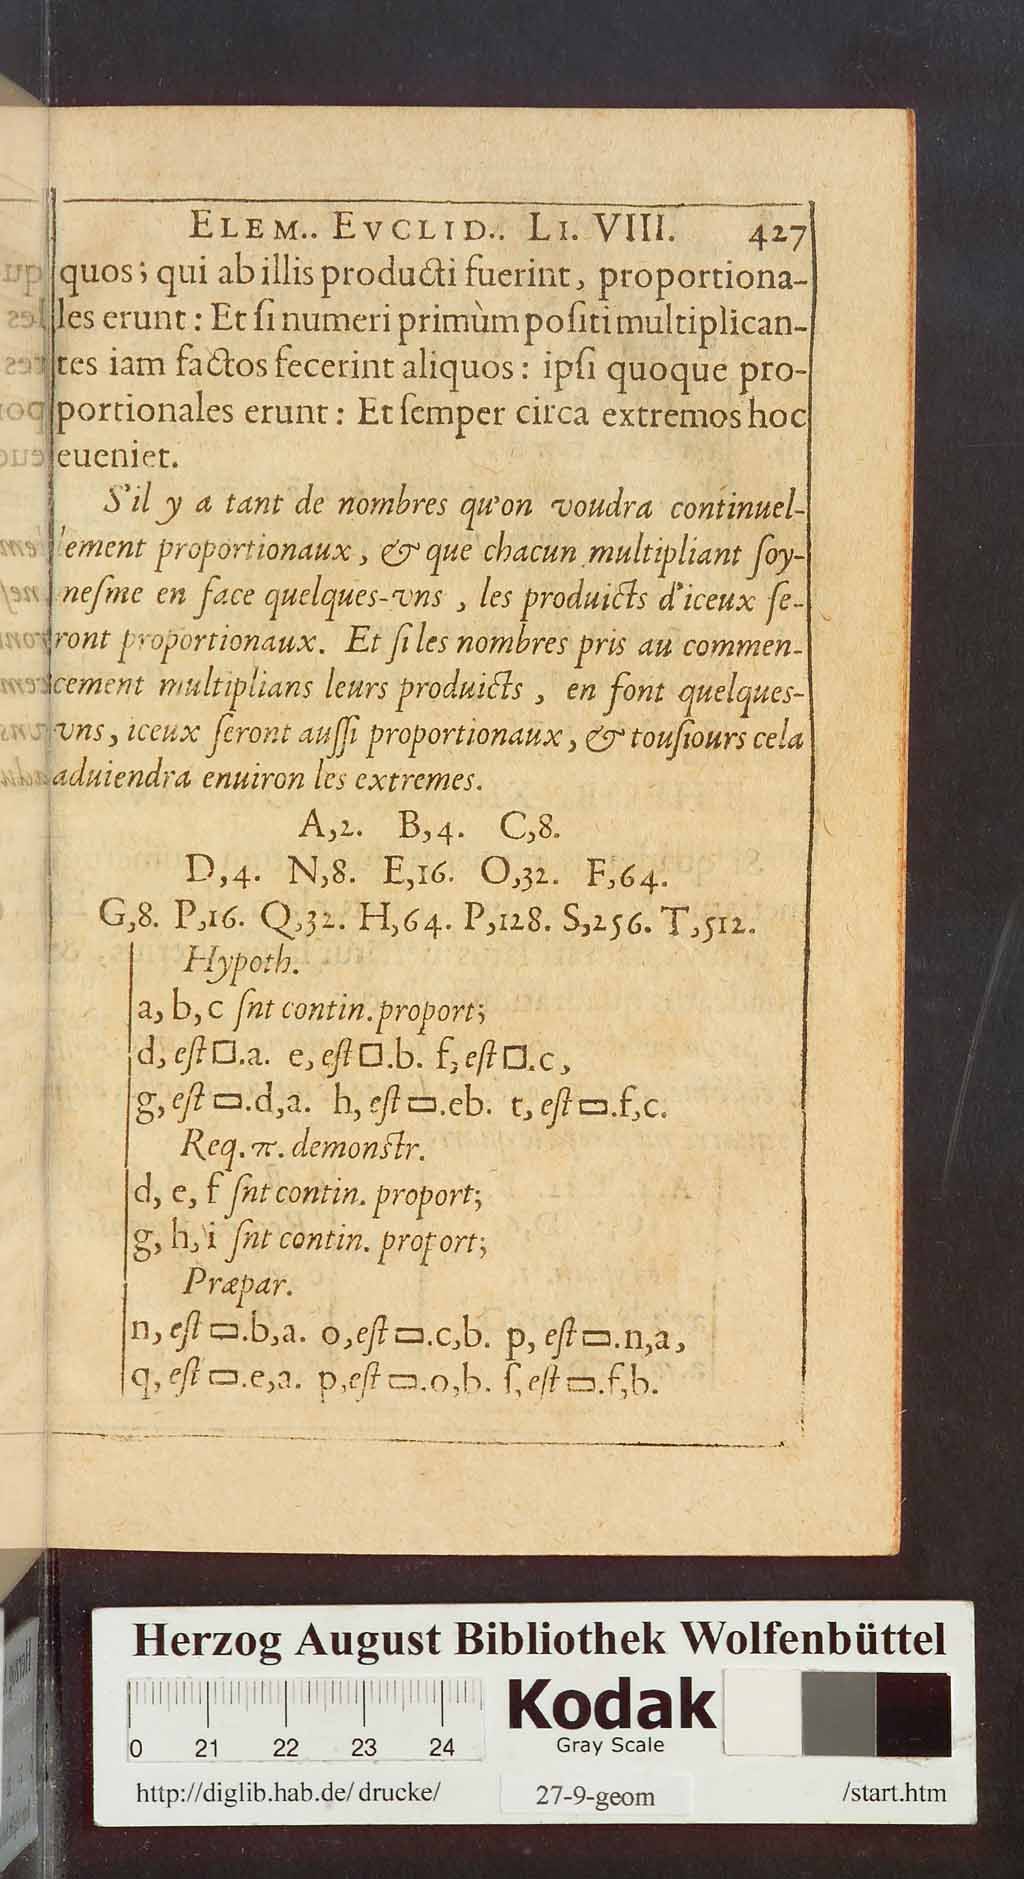 ELEM.. EVCLID.. LI. VIII. 427
quos; qui ab illis producti fuerint, proportiona-
les erunt: Et ſi numeri primùm poſiti multiplican-
tes iam factos fecerint aliquos: ipſi quoque pro-
portionales erunt: Et ſemper circa extremos hoc
eueniet.
S'il y a tant de nombres qu'on voudra continuel-
lement proportionaux, & que chacun multipliant ſoy-
meſme en face quelques-vns, les produicts d'iceux ſe-
ront proportionaux. Et ſi les nombres pris au commen-
cement multiplians leurs produicts, en font quelques-
vns, iceux ſeront auſſi proportionaux, & touſiours cela
aduiendra enuiron les extremes.
A,2. B,4. C,8.
D,4. N,8. E,16. O,32. F,64.
G,8. P,16. Q,32. H,64. P,128. S,256. T,512.
Hypoth.
a, b, c ſnt contin. proport;
d, eſt □.a. e, eſt □.b. f, eſt □.c,
g, eſt ▭.d,a. h, eſt ▭.eb. t, eſt ▭.f,c.
Req. π. demonſtr.
d, e, f ſnt contin. proport;
g, h, i ſnt contin. proport;
Præpar.
n, eſt ▭.b,a. o, eſt ▭.c,b. p, eſt ▭.n,a,
q, eſt ▭.e,a. p, eſt ▭.o,b. ſ, eſt ▭.f,b.
Herzog August Bibliothek Wolfenbüttel
0 21 22 23 24
Kodak
Gray Scale
http://diglib.hab.de/ drucke/ 27-9-geom /start.htm